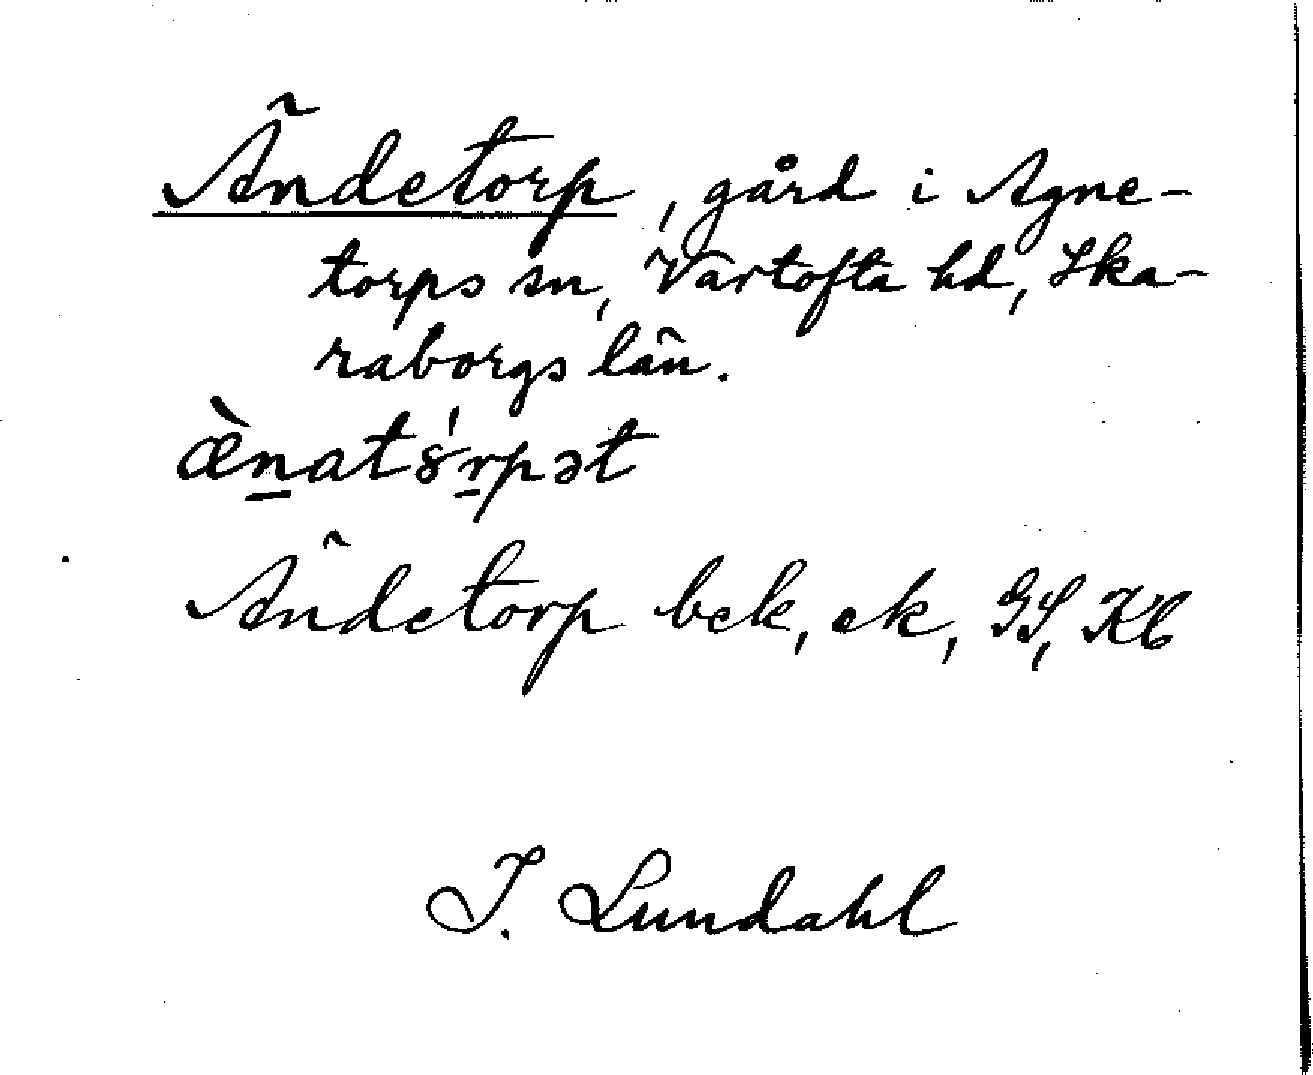 Ändetorp, gård i Agne-
torps sn, Vartofta hd, Ska-
raborgs län.
æ̀n̠atȣ́r̠pət
Ändetorp bek, ek, GS, Kb
I. Lundahl